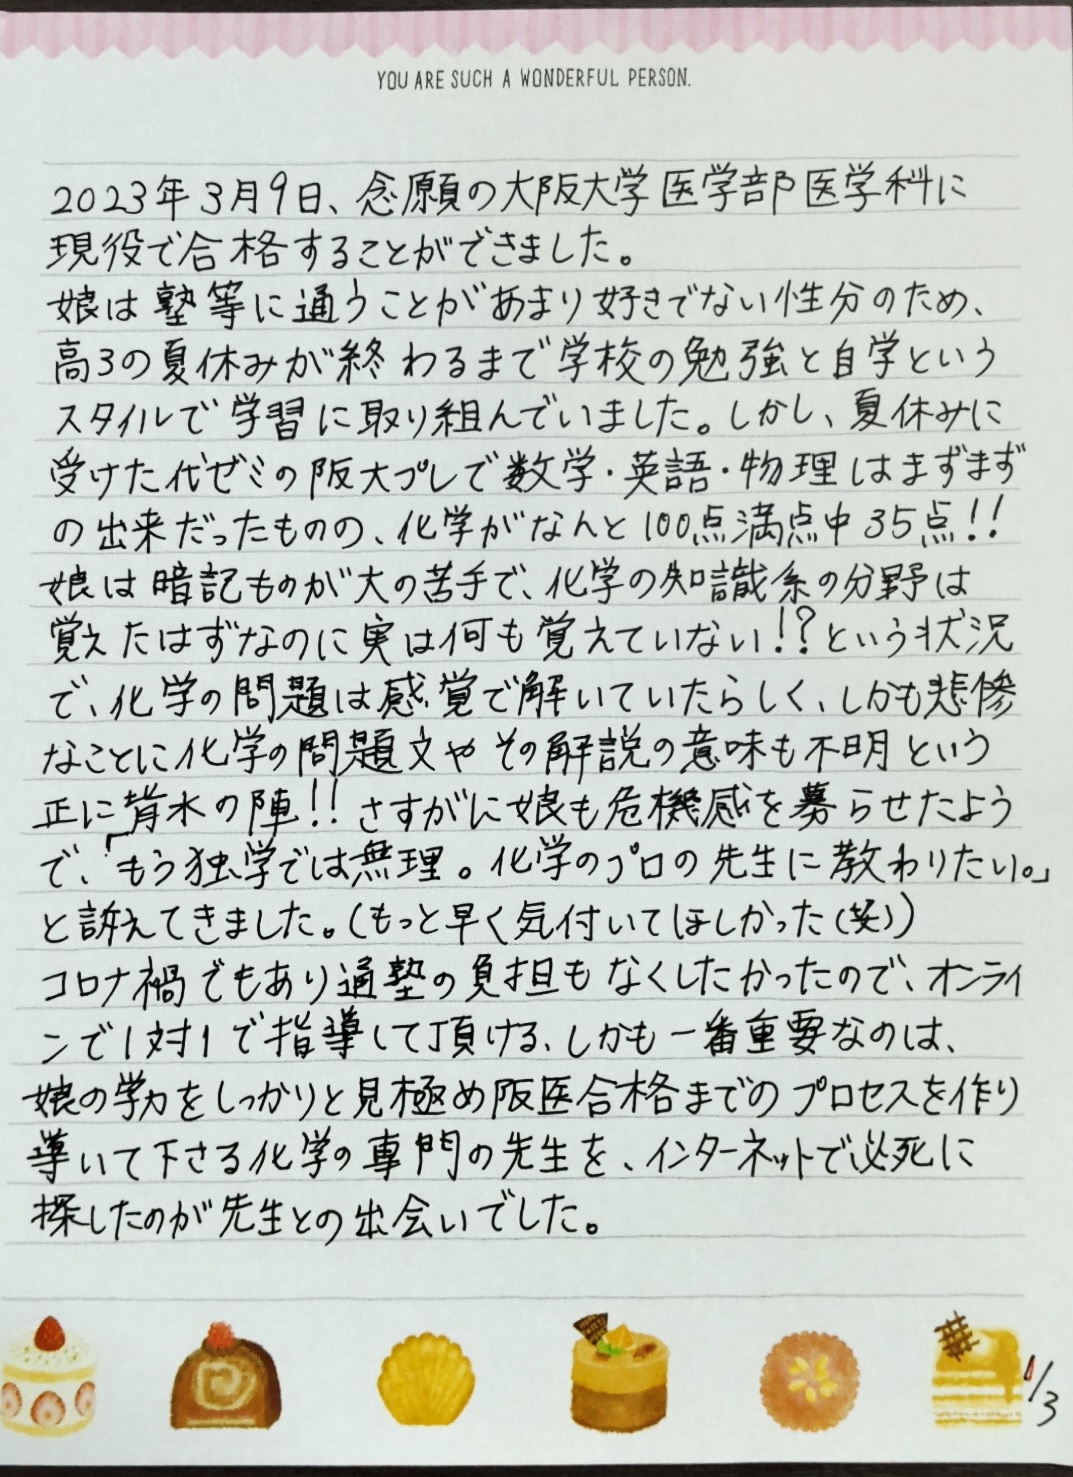 YOU ARE SUCH A WONDERFUL PERSON.
2023年3月9日、念願の大阪大学医学部医学科に
現役で合格することができました。
娘は塾等に通うことがあまり好きでない性分のため、
高3の夏休みが終わるまで学校の勉強と自学という
スタイルで学習に取り組んでいました。しかし、夏休みに
受けた代ゼミの阪大プレで数学・英語・物理はまずまず
の出来だったものの、化学がなんと100点満点中35点!!
娘は暗記ものが大の苦手で、化学の知識系の分野は
覚えたはずなのに実は何も覚えていない!?という状況
で、化学の問題は感覚で解いていたらしく、しかも悲惨
なことに化学の問題文やその解説の意味も不明という
正に背水の陣!!さすがに娘も危機感を募らせたよう
で、「もう独学では無理。化学のプロの先生に教わりたい。」
と訴えてきました。(もっと早く気付いてほしかった(笑))
コロナ禍でもあり通塾の負担もなくしたかったので、オンライ
ンで1対1で指導して頂ける、しかも一番重要なのは、
娘の学力をしっかりと見極め阪医合格までのプロセスを作り
導いて下さる化学の専門の先生を、インターネットで必死に
探したのが先生との出会いでした。
1/3